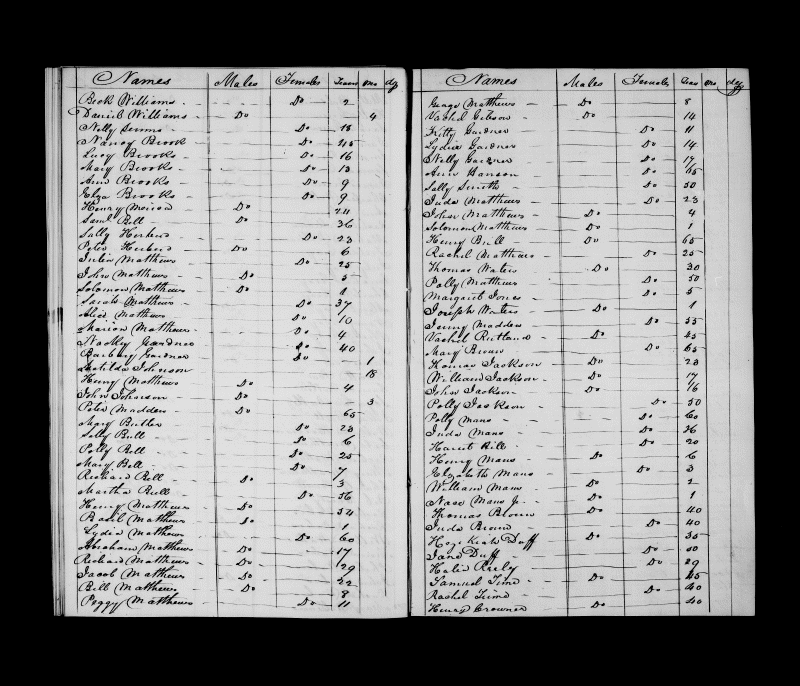 Names Males Females Years mo dy
Beck Williams Do 2
Daniel Williams Do 4
Nelly Semms Do 18
Nancy Brook Do 45
Lucy Brooks Do 16
Mary Brooks Do 13
Ann Brooks Do 9
Eliza Brooks Do 9
Henry Do 24
Saml Bell Do 36
Sally Herberd Do 23
Peter Herberd Do 6
Julia Matthews Do 25
John Matthews Do 5
Solomon Matthews Do 1
Sarah Matthews Do 37
Alice Matthews Do 10
Marion Matthews Do 4
Gardner Do 40
Barbary Gardner Do 1
Matilda Johnson 18
Henry Matthews Do 4
John Johnson Do 3
Peter Madden Do 65
Mary Butler Do 23
Sally Bell Do 6
Polly Bell Do 25
Mary Bell Do 7
Richard Bell Do 3
Martha Bull Do 56
Henry Matthews Do 54
Basil Matthews Do 1
Lydia Matthews Do 60
Abraham Matthews Do 17
Richard Matthews Do 29
Jacob Matthews Do 22
Bill Matthews Do 8
Peggy Matthews Do 11
Names Males Females Years mo dy
George Matthews Do 8
Vachel Gibson Do 14
Kitty Gardner Do 11
Lydia Gardner Do 14
Nelly Gardner Do 17
Ann Hanson Do 45
Sally Smith Do 50
Juda Matthews Do 23
John Matthews Do 4
Solomon Matthews Do 1
Henry Bull Do 65
Rachel Matthews Do 25
Thomas Waters Do 30
Polly Matthews Do 50
Margaret Jones Do 5
Joseph Waters Do 1
Jenny Madden Do 55
Vachel Rutland Do 45
Mary Brown Do 65
Thomas Jackson Do 23
William Jackson Do 17
John Jackson Do 16
Polly Jackson Do 50
Polly Mans Do 60
Juda Mans Do 36
Harriet Hill Do 20
Henry Mans Do 6
Elizabeth Mans Do 3
William Mans Do 2
Nace Mans Jr. Do 1
Thomas Brown Do 40
Juda Brown Do 40
Hezekiah Duff Do 35
Jane Duff Do 50
Reely Do 29
Samuel Do 45
Rachel Do 40
Henry Crowner Do 40